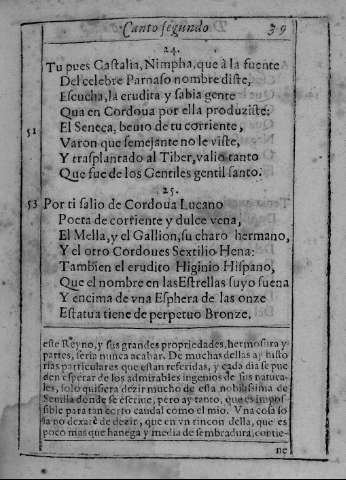 Canto segundo 39
24.
Tu pues Castalia, Nimpha, que à la fuente
Del celebre Parnaso nombre diste,
Escucha, la erudita y sabia gente
Qua en Cordoua por ella produziste:
51 El Seneca, beuio de tu corriente,
Varon que semejante no le viste,
Y trasplantado al Tiber, valio tanto
Que fue de los Gentiles gentil santo.
25.
53 Por ti salio de Cordoua Lucano
Poeta de corriente y dulce vena,
El Mella, y el Gallion, su charo hermano,
Y el otro Cordoues Sextilio Hena:
Tambien el erudito Higinio Hispano,
Que el nombre en las Estrellas suyo suena
Y encima de vna Esphera de las onze
Estatua tiene de perpetuo Bronze.
este Reyno, y sus grandes propriedades, hermosura y
partes, seria nunca acabar. De muchas dellas ay histo
rias particulares que estan referidas, y cada dia se pue
den esperar de los admirables ingenios de sus natura-
les, solo quisiera dezir mucho de esta nobilissima de
Seuilla donde se escriue, pero ay tanto, que es impos
sible para tan corto caudal como el mio. Vna cosa so
la no dexarè de dezir, que en vn rincon della, que es
poco mas que hanega y media de sembradura, contie-
ne